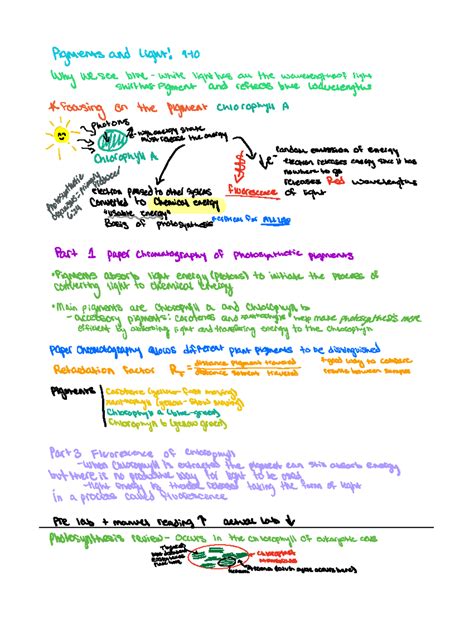 Pigments and Light! 9-10
Why we see blue - white light has all the wavelengths of light
pigment and reflects blue wavelengths
* Focusing on the pigment chlorophyll A
Photons
e- high energy state
must release the energy
Chlorophyll A
random emission of energy
e- electron releases energy since it has
nowhere to go
releases Red wavelengths
of light
fluorescence
Photosynthetic
organisms - primary
producer
electron passed to other systems
Converted to Chemical energy
"usable energy"
Basis of photosynthesis → critical for all life
Part 1 paper chromatography of photosynthetic pigments
• Pigments absorb light energy (photons) to initiate the process of
converting light to chemical energy
• Main pigments are chlorophyll a and chlorophyll b
- accessory pigments: carotenes and xanthophylls help make photosynthesis more
efficient by absorbing light and transferring energy to the chlorophyll
Paper chromatography allows different plant pigments to be distinguished
Retardation factor Rf = distance pigment traveled
distance solvent traveled
a good way to compare
results between samples
Pigments
Carotene (yellow - fast moving)
xanthophyll (yellow - slow moving)
Chlorophyll a (blue-green)
Chlorophyll b (yellow green)
Part 3 Fluorescence of chlorophyll
- when chlorophyll is extracted the pigment can still absorb energy
but there is no productive way for light to be used
- light energy is released taking the form of light
in a process called fluorescence
Pre lab + manual reading ↑ actual lab ↓
Photosynthesis review - occurs in the chlorophyll of eukaryotic cells
chloroplast
membrane
stroma (calvin cycle occurs here)